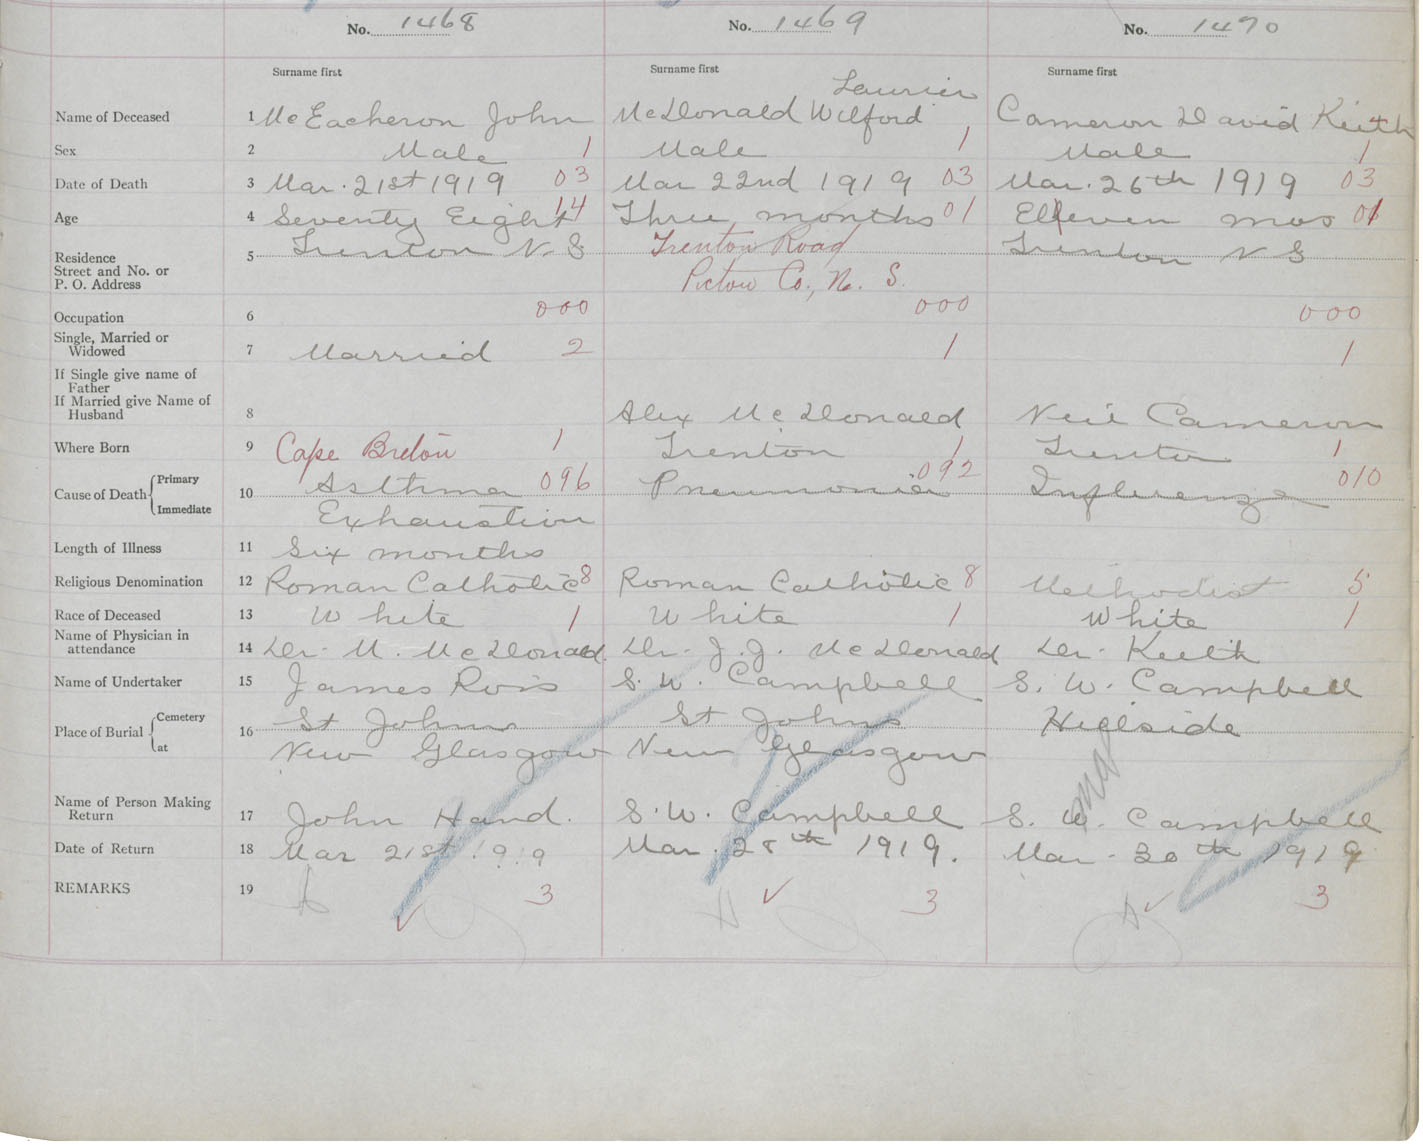 No. 1468 No. 1469 No. 1470
Surname first Surname first Surname first
Laurier
Name of Deceased 1 McEacheron John McDonald Wilford Cameron David Keith
Sex 2 Male 1 Male 1 Male 1
Date of Death 3 Mar. 21st 1919 03 Mar 22nd 1919 03 Mar. 26th 1919 03
Age 4 Seventy Eight 14 Three months 01 Elleven mos 01
Residence 5 Trenton N.S Trenton Road Trenton N S
Street and No. or
P. O. Address Pictou Co., N. S.
Occupation 6 000 000 000
Single, Married or
Widowed 7 Married 2 1 1
If Single give name of
Father
If Married give Name of
Husband 8 Alex McDonald Neil Cameron
Where Born 9 Cape Breton 1 Trenton 1 Trenton 1
Cause of Death Primary 10 Asthma 096 Pneumonia 092 Influenza 010
Immediate Exhaustion
Length of Illness 11 Six months
Religious Denomination 12 Roman Catholic 8 Roman Catholic 8 Methodist 5
Race of Deceased 13 White 1 White 1 White 1
Name of Physician in
attendance 14 Dr. M. McDonald. Dr. J.J. McDonald Dr. Keith
Name of Undertaker 15 James Ross S. W. Campbell S. W. Campbell
Place of Burial Cemetery 16 St Johns St Johns Hillside
at New Glasgow New Glasgow
Name of Person Making
Return 17 John Hand. S. W. Campbell S. W. Campbell
Date of Return 18 Mar 21st 1919 Mar. 28th 1919. Mar. 30th 1919
REMARKS 19 3 ✓ 3 ✓ 3
✓